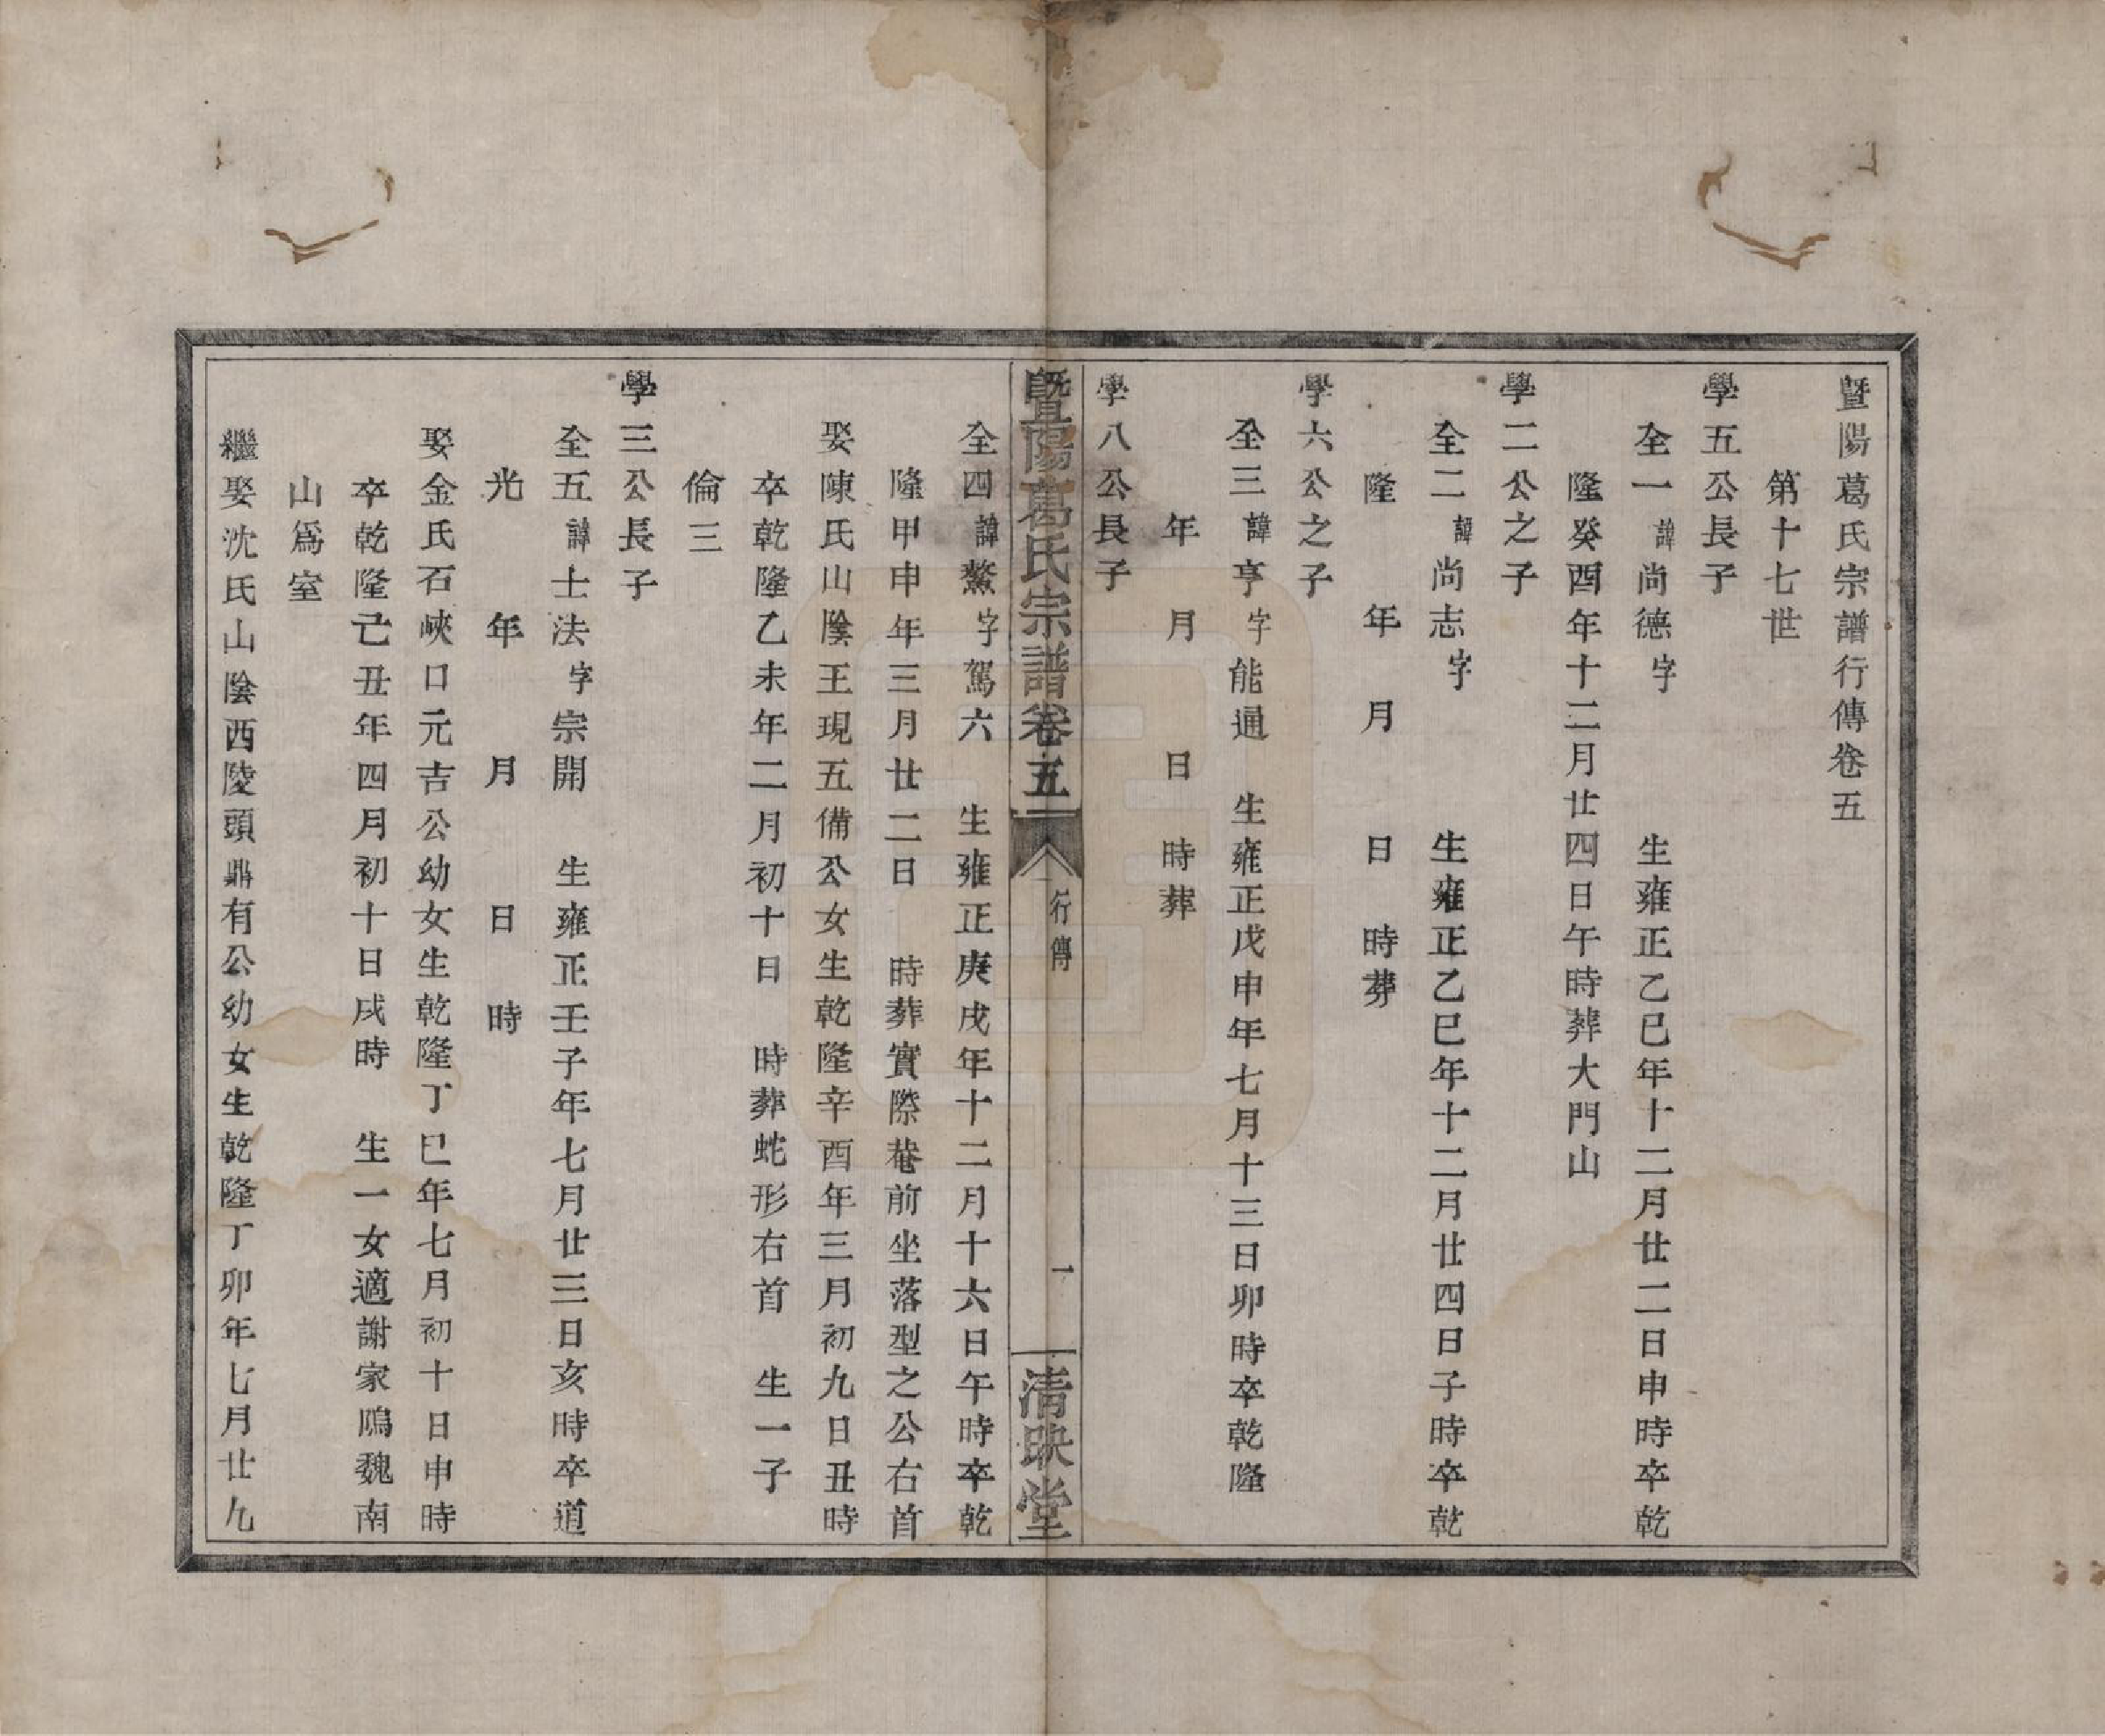 暨陽葛氏宗譜行傳卷五
第十七世
學五公長子
全一諱尚德字　生雍正乙巳年十二月廿二日申時卒乾
隆癸酉年十二月廿四日午時葬大門山
學二公之子
全二諱尚志字　生雍正乙巳年十二月廿四日子時卒乾
隆　年　月　日　時葬
學六公之子
全三諱亨字能通　生雍正戊申年七月十三日卯時卒乾隆
年　月　日　時葬
學八公長子
暨陽葛氏宗譜卷五　行傳　一　清映堂
全四諱鰲字駕六　生雍正庚戌年十二月十六日午時卒乾
隆甲申年三月廿二日　時葬實際菴前坐落型之公右首
娶陳氏山陰王現五備公女生乾隆辛酉年三月初九日丑時
卒乾隆乙未年二月初十日　時葬蛇形右首　生一子
倫三
學三公長子
全五諱士法字宗開　生雍正壬子年七月廿三日亥時卒道
光　年　月　日　時
娶金氏石峽口元吉公幼女生乾隆丁巳年七月初十日申時
卒乾隆己丑年四月初十日戌時　生一女適謝家隝魏南
山爲室
繼娶沈氏山陰西陵頭鼎有公幼女生乾隆丁卯年七月廿九